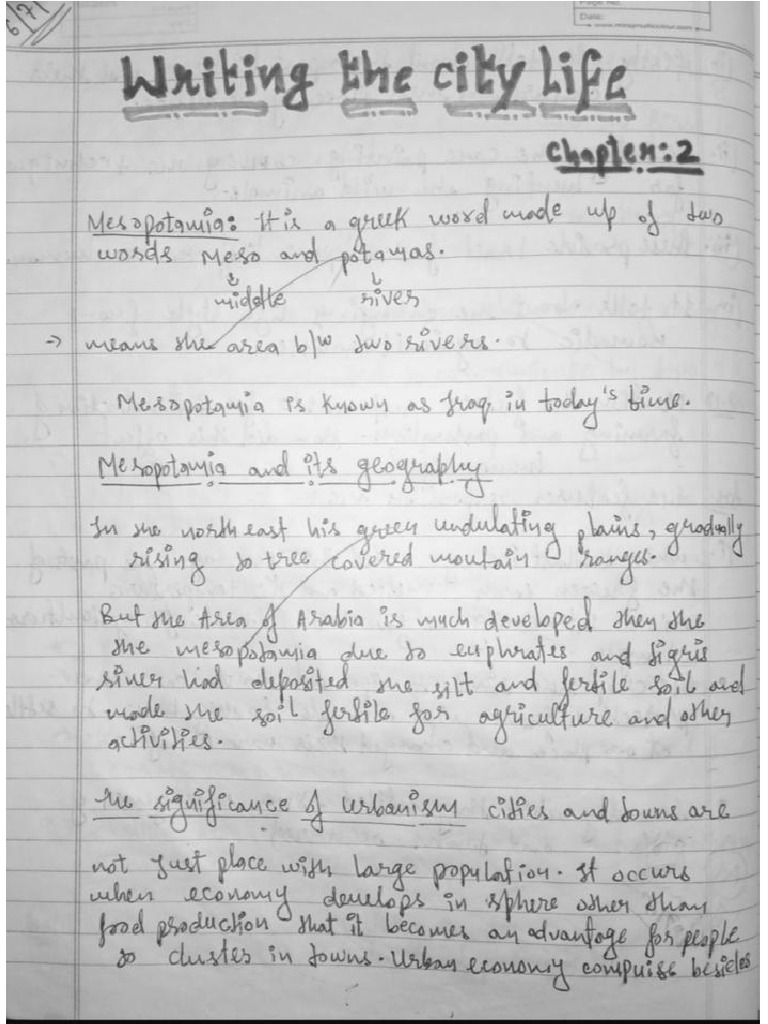 6/7/
Page No.
Date:
Writing the city life
Chapter:2
Mesopotamia: It is a greek word made up of two
words Meso and potamas.
middle river
→ means the area b/w two rivers.
Mesopotamia is known as Iraq in today's time.
Mesopotamia and its geography
In the north east his green undulating plains, gradually
rising to tree covered moutain ranges.
But the Area of Arabia is much developed then the
the mesopotamia due to euphrates and tigris
had deposited the silt and fertile soil and
made the soil fertile for agriculture and other
activities.
the significance of urbanism cities and towns are
not just place with large population. It occurs
when economy develops in sphere other than
food production that it becomes an advantage for people
to cluster in towns. Urban economy compuise besides